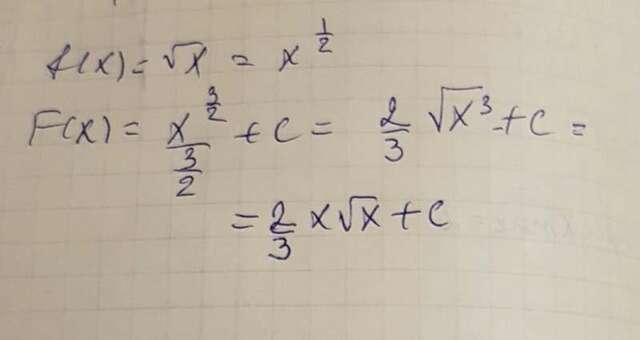 f(x) = √x = x^(1/2)
F(x) = x^(3/2)/(3/2) + c = 2/3 √x³ + c =
= 2/3 x√x + c